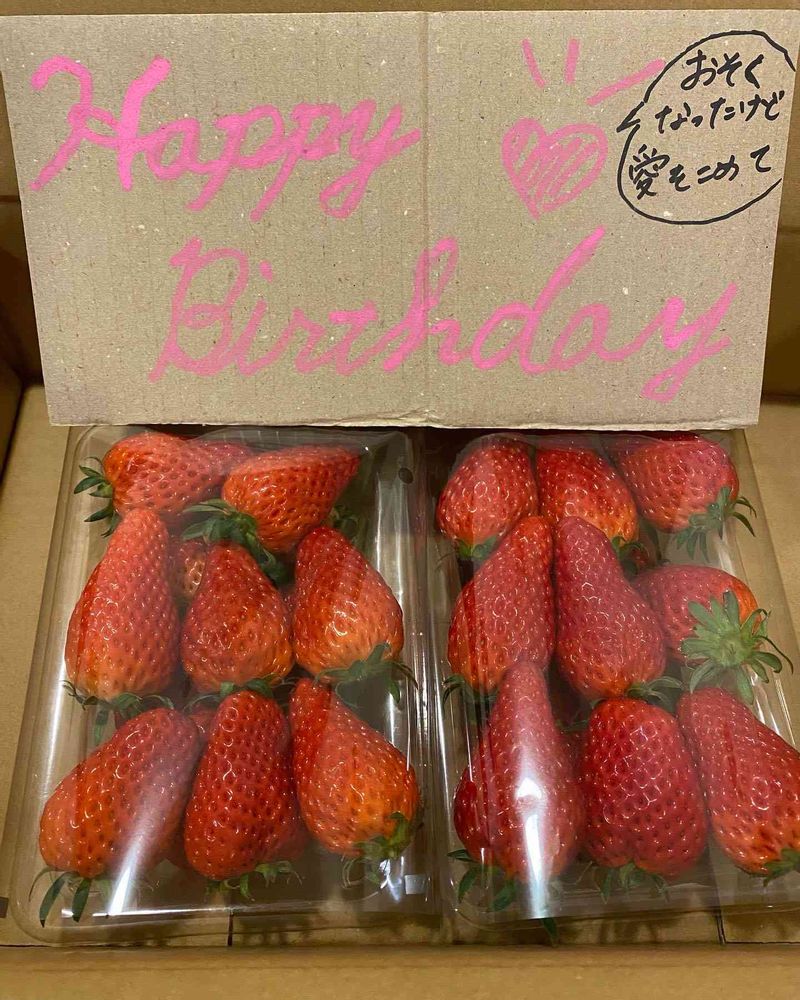 Happy
Birthday
おそく
なったけど
愛をこめて